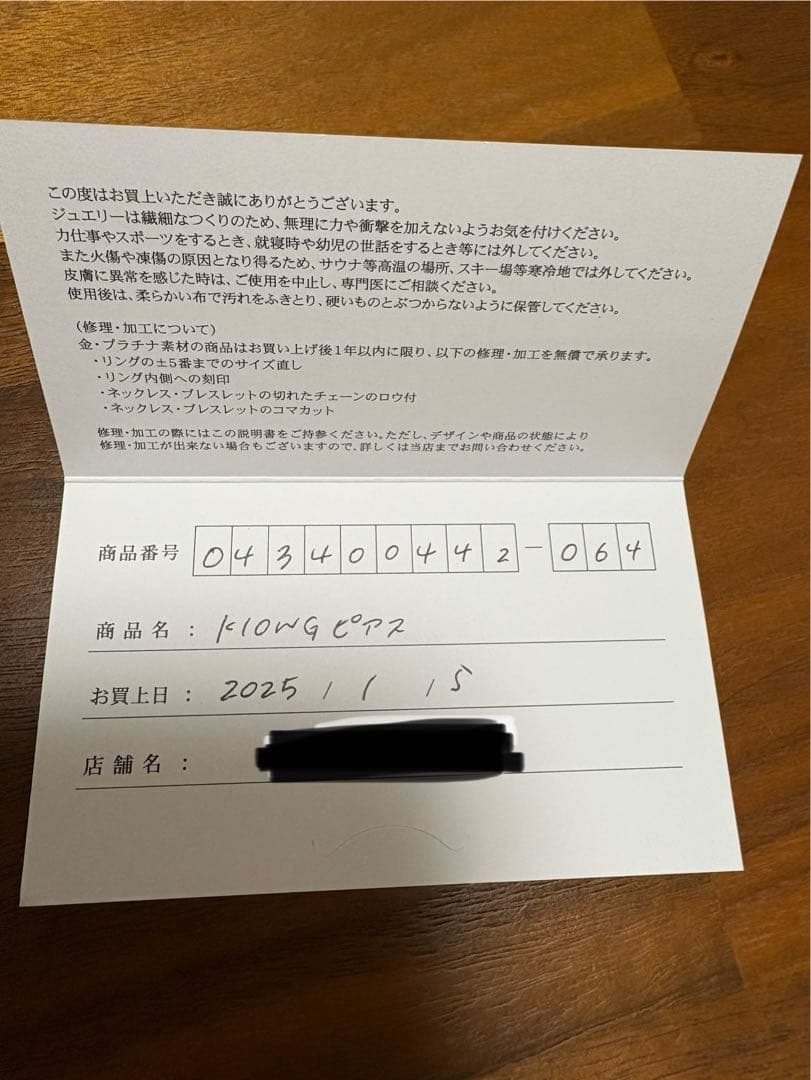 この度はお買上いただき誠にありがとうございます。
ジュエリーは繊細なつくりのため、無理に力や衝撃を加えないようお気を付けください。
力仕事やスポーツをするとき、就寝時や幼児の世話をするとき等には外してください。
また火傷や凍傷の原因となり得るため、サウナ等高温の場所、スキー場等寒冷地では外してください。
皮膚に異常を感じた時は、ご使用を中止し、専門医にご相談ください。
使用後は、柔らかい布で汚れをふきとり、硬いものとぶつからないように保管してください。
〈修理・加工について〉
金・プラチナ素材の商品はお買い上げ後1年以内に限り、以下の修理・加工を無償で承ります。
・リングの±5番までのサイズ直し
・リング内側への刻印
・ネックレス・ブレスレットの切れたチェーンのロウ付
・ネックレス・ブレスレットのコマカット
修理・加工の際にはこの説明書をご持参ください。ただし、デザインや商品の状態により
修理・加工が出来ない場合もございますので、詳しくは当店までお問い合わせください。
商品番号 043400442-064
商品名：K10WGピアス
お買上日：2025/1/15
店舗名：